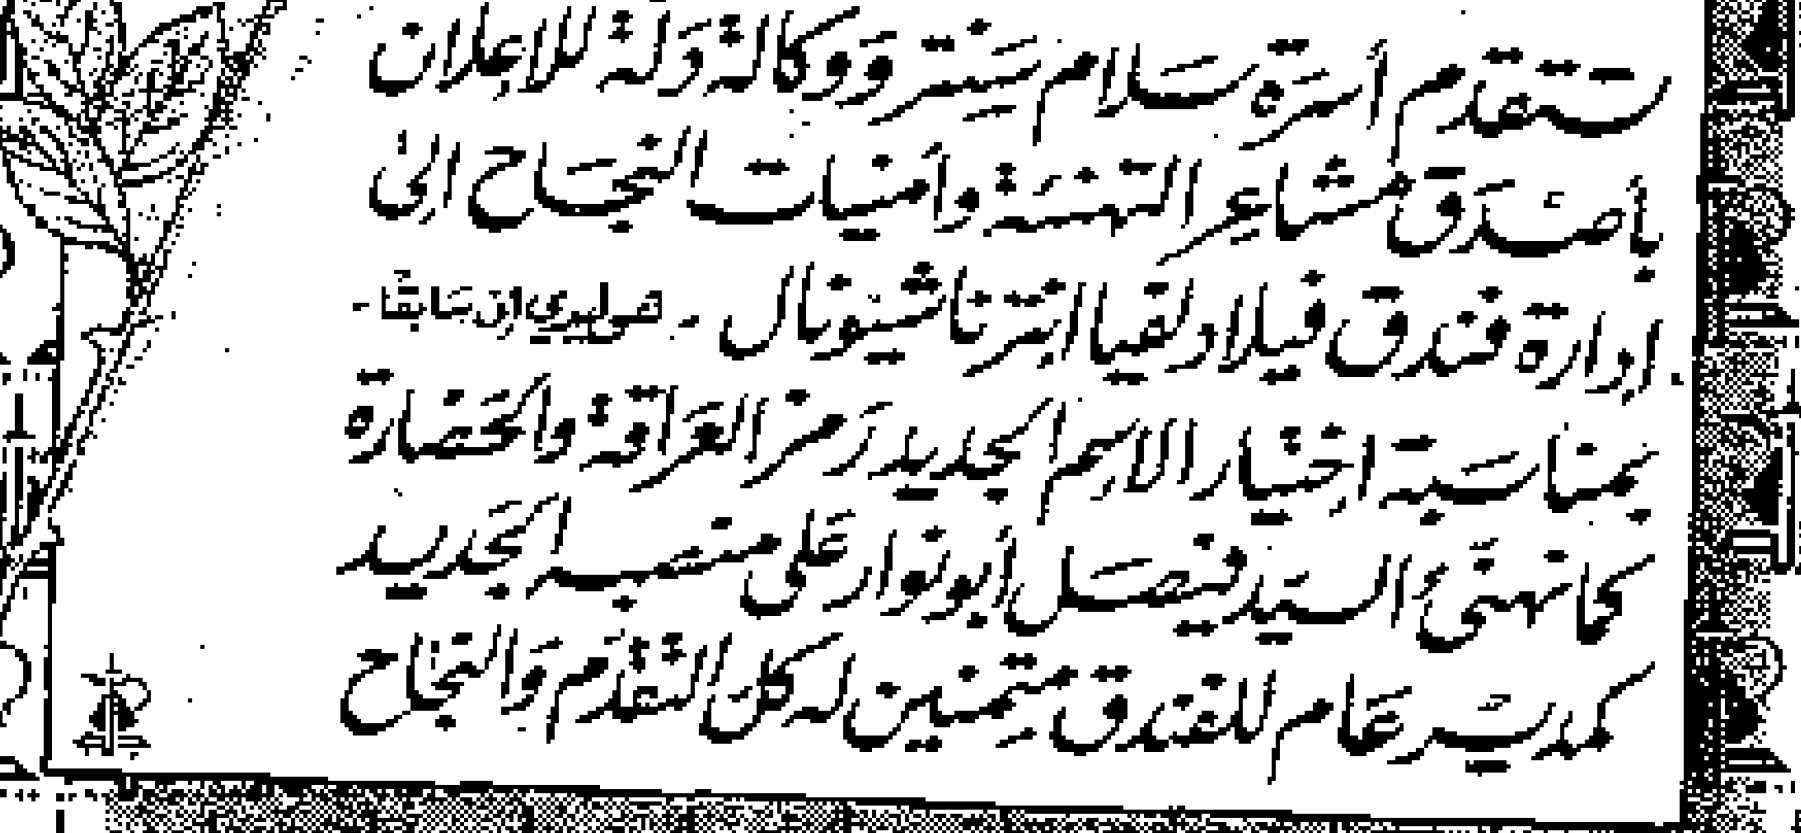 تتقدم أسرة سلام سينتر ووكالة دلة للإعلان
بأصدق مشاعر التهنئة وأمنيات النجاح الى
إدارة فندق فيلادلفيا انترناشيونال - هوليدي إن سابقا -
بمناسبة اختيار الاسم الجديد رمز العراقة والحضارة
كما نهنئ السيد فيصل أبو نوار على منصبه الجديد
كمدير عام للفندق متمنين له كل التقدم والنجاح